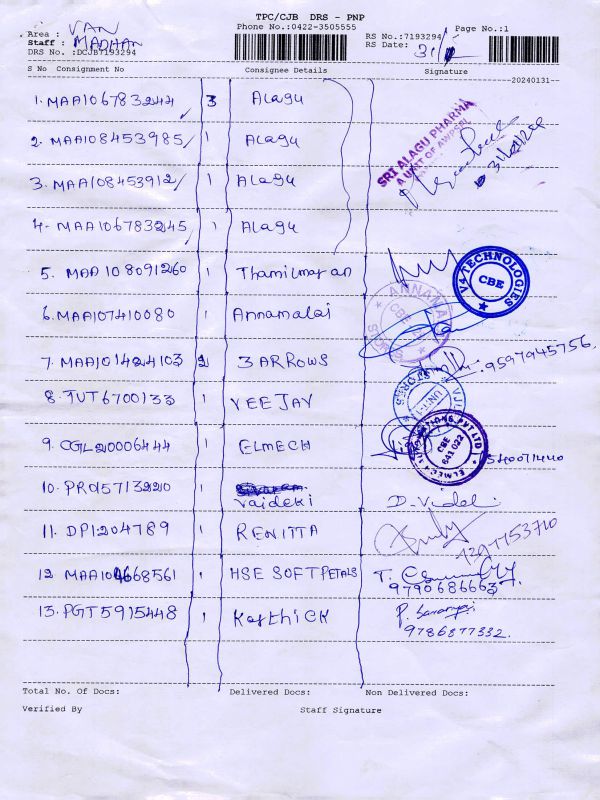 TPC/CJB DRS - PNP
Phone No.:0422-3505555
Page No.:1
Area : VAN
Staff : MADHAN
DRS No. :DCJB7193294
RS No.:7193294
RS Date: 31/
S No Consignment No Consignee Details Signature
20240131
1. MAA106783244 3 Alagu
2. MAA108453985 1 Alagu
3. MAA108453912 1 Alagu
4. MAA106783245 1 Alagu
SRI ALAGU PHARMA
A UNIT OF
5. MAA108091260 1 Thamilmaran
V4 TECHNOLOGIES
CBE
6. MAA107410080 1 Annamalai
ANNAMALAI
CBE
7. MAA101424103 2 3 ARROWS
9597945756
8. TUT6700133 1 VEEJAY
STORES
UNIT-1
9. CGL20006444 1 ELMECH
ELMECH
PVT LTD
CBE
641 022
10. PRO5713220 1 Vaideki
11. DP1204789 1 RENITTA
12 MAA104668561 1 HSE SOFT PETALS
9790686663
13. PGT5915448 1 Karthick
9786877332.
Total No. Of Docs: Delivered Docs: Non Delivered Docs:
Verified By Staff Signature